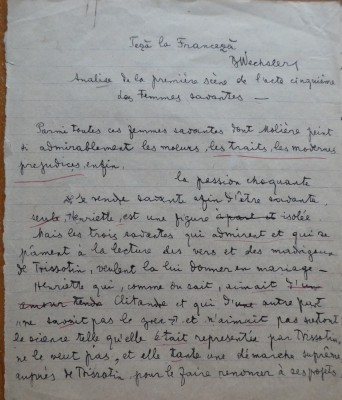 Teză la Franceză
B. Wechsler
Analise de la première scène de l'acte cinquième
des Femmes savantes —
Parmi toutes ces femmes savantes dont Molière peint
si admirablement les mœurs, les traits, les
prejudices, enfin,
la passion choquante
de se rendre savant afin d'être savante
seule, Henriette, est une figure à part et isolée
Mais les trois savantes qui admirent et qui se
pâment à la lecture des vers et des madrigeux
de Trissotin, veulent la lui donner en mariage —
Henriette qui, comme on sait, aimait d'un
amour tendre Clitandre et qui d'une autre part
ne savait pas le grec et n'aimait pas surtout
la science telle qu'elle était representée par Trissotin,
ne le veut pas, et elle tente une démarche suprême
auprès de Trissotin pour le faire renoncer à ses projets